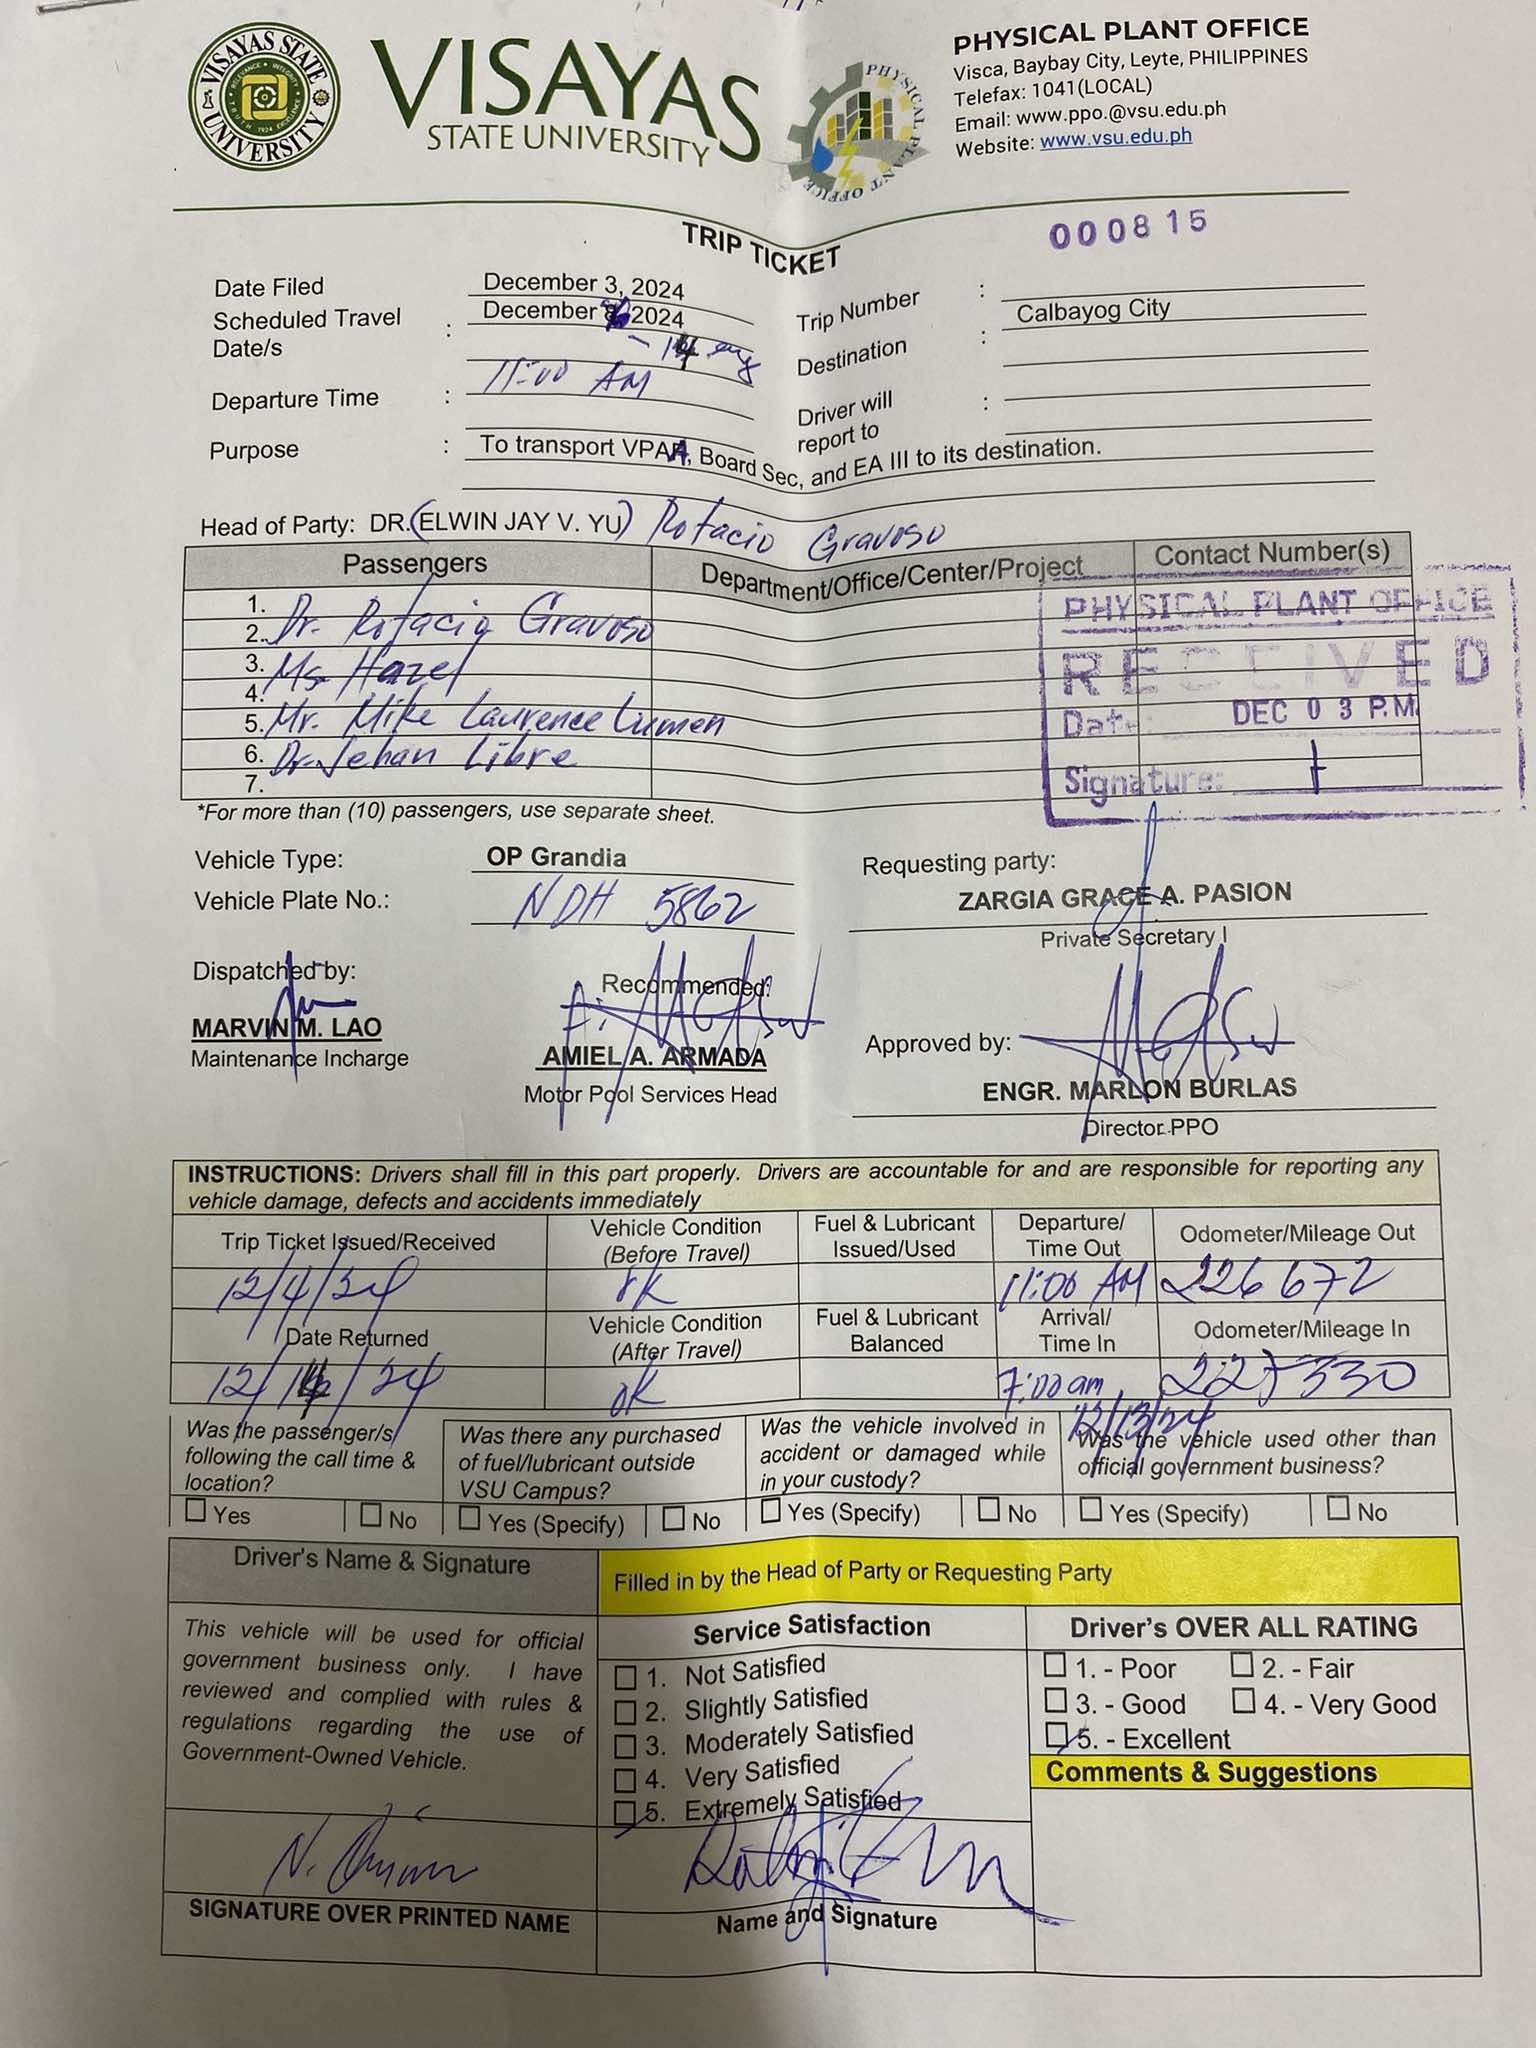 VISAYAS STATE UNIVERSITY
RELEVANCE INTEGRITY TRUTH 1924 EXCELLENCE
VISAYAS
STATE UNIVERSITY
PHYSICAL PLANT OFFICE
PHYSICAL PLANT OFFICE
Visca, Baybay City, Leyte, PHILIPPINES
Telefax: 1041(LOCAL)
Email: www.ppo.@vsu.edu.ph
Website: www.vsu.edu.ph
TRIP TICKET
000815
Date Filed December 3, 2024
Scheduled Travel Date/s : December 2024
- 14
Departure Time : 11:00 AM
Trip Number :
Destination : Calbayog City
Driver will report to :
Purpose : To transport VPAA, Board Sec, and EA III to its destination.
Head of Party: DR. (ELWIN JAY V. YU) Rotacio Gravoso
Passengers Department/Office/Center/Project Contact Number(s)
1.
2. Dr. Rotacio Gravoso
3. Ms. Hazel
4.
5. Mr. Mike Laurence Lumen
6. Dr. Jehan Libre
7.
PHYSICAL PLANT OFFICE
RECEIVED
Date: DEC 03 P.M.
Signature:
*For more than (10) passengers, use separate sheet.
Vehicle Type: OP Grandia
Vehicle Plate No.: NDH 5862
Requesting party:
ZARGIA GRACE A. PASION
Private Secretary I
Dispatched by:
MARVIN M. LAO
Maintenance Incharge
Recommended:
AMIEL A. ARMADA
Motor Pool Services Head
Approved by:
ENGR. MARLON BURLAS
Director PPO
INSTRUCTIONS: Drivers shall fill in this part properly. Drivers are accountable for and are responsible for reporting any
vehicle damage, defects and accidents immediately
Trip Ticket Issued/Received Vehicle Condition (Before Travel) Fuel & Lubricant Issued/Used Departure/ Time Out Odometer/Mileage Out
12/4/24 ok 11:00 AM 226672
Date Returned Vehicle Condition (After Travel) Fuel & Lubricant Balanced Arrival/ Time In Odometer/Mileage In
12/14/24 ok 7:00am 227330
12/13/24
Was the passenger/s following the call time & location?
Yes No
Was there any purchased of fuel/lubricant outside VSU Campus?
Yes (Specify) No
Was the vehicle involved in accident or damaged while in your custody?
Yes (Specify) No
Was the vehicle used other than official government business?
Yes (Specify) No
Driver's Name & Signature
This vehicle will be used for official
government business only. I have
reviewed and complied with rules &
regulations regarding the use of
Government-Owned Vehicle.
SIGNATURE OVER PRINTED NAME
Filled in by the Head of Party or Requesting Party
Service Satisfaction
1. Not Satisfied
2. Slightly Satisfied
3. Moderately Satisfied
4. Very Satisfied
5. Extremely Satisfied
Name and Signature
Driver's OVER ALL RATING
1. - Poor 2. - Fair
3. - Good 4. - Very Good
5. - Excellent
Comments & Suggestions